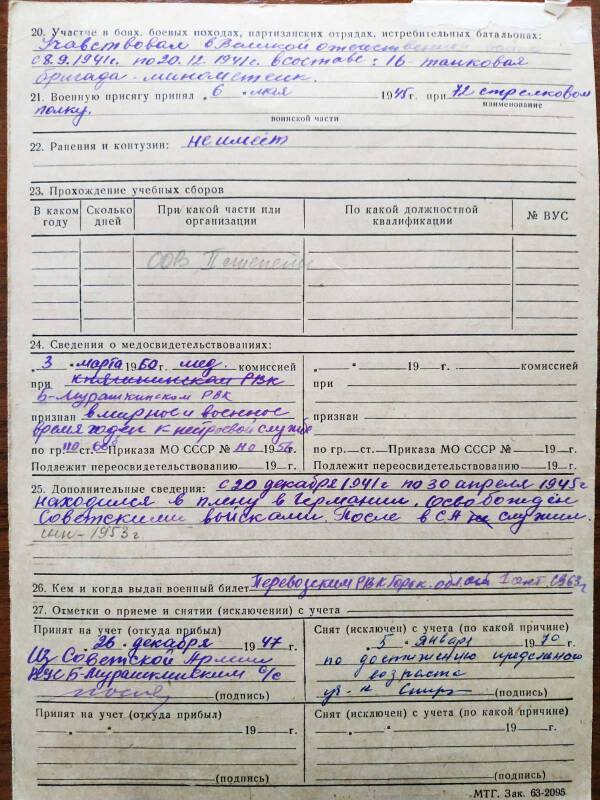 20. Участие в боях, боевых походах, партизанских отрядах, истребительных батальонах:
Учавствовал в Великой отечественной
с 8.9.1941г. по 20.12.1941г. в составе: 16 танковая
бригада - минометчик.
21. Военную присягу принял „ 6 " мая 1945 г. при 72 стрелковом
наименование
полку.
воинской части
22. Ранения и контузии: не имеет
23. Прохождение учебных сборов
В каком году Сколько дней При какой части или организации По какой должностной квалификации № ВУС
24. Сведения о медосвидетельствованиях:
„ 3 " марта 1960 г. мед. комиссией
при княгининском РВК
Б-Мурашкинском РВК
признан в мирное и военное
время годен к нестроевой службе
по гр. ст. Приказа МО СССР № 110 195 г.
Подлежит переосвидетельствованию 19 г.
„ " 19 г. комиссией
при
признан
по гр. ст. Приказа МО СССР № 19 г.
Подлежит переосвидетельствованию 19 г.
25. Дополнительные сведения: с 20 декабря 1941г по 30 апреля 1945г
находился в плену в Германии. Освобождён
Советскими войсками. После в СА не служил.
1953 г.
26. Кем и когда выдан военный билет Перевозским РВК Горьк. обл. 1 окт. 1963г
27. Отметки о приеме и снятии (исключении) с учета
Принят на учет (откуда прибыл)
„ 26 " декабря 1947 г.
Из Советской Армии
Б-Мурашкинским с/с
(подпись)
Снят (исключен) с учета (по какой причине)
„ 5 " января 1970 г.
по достижению предельного
возраста
(подпись)
Принят на учет (откуда прибыл)
„ " 19 г.
(подпись)
Снят (исключен) с учета (по какой причине)
„ " 19 г.
(подпись)
МТГ. Зак. 63-2095